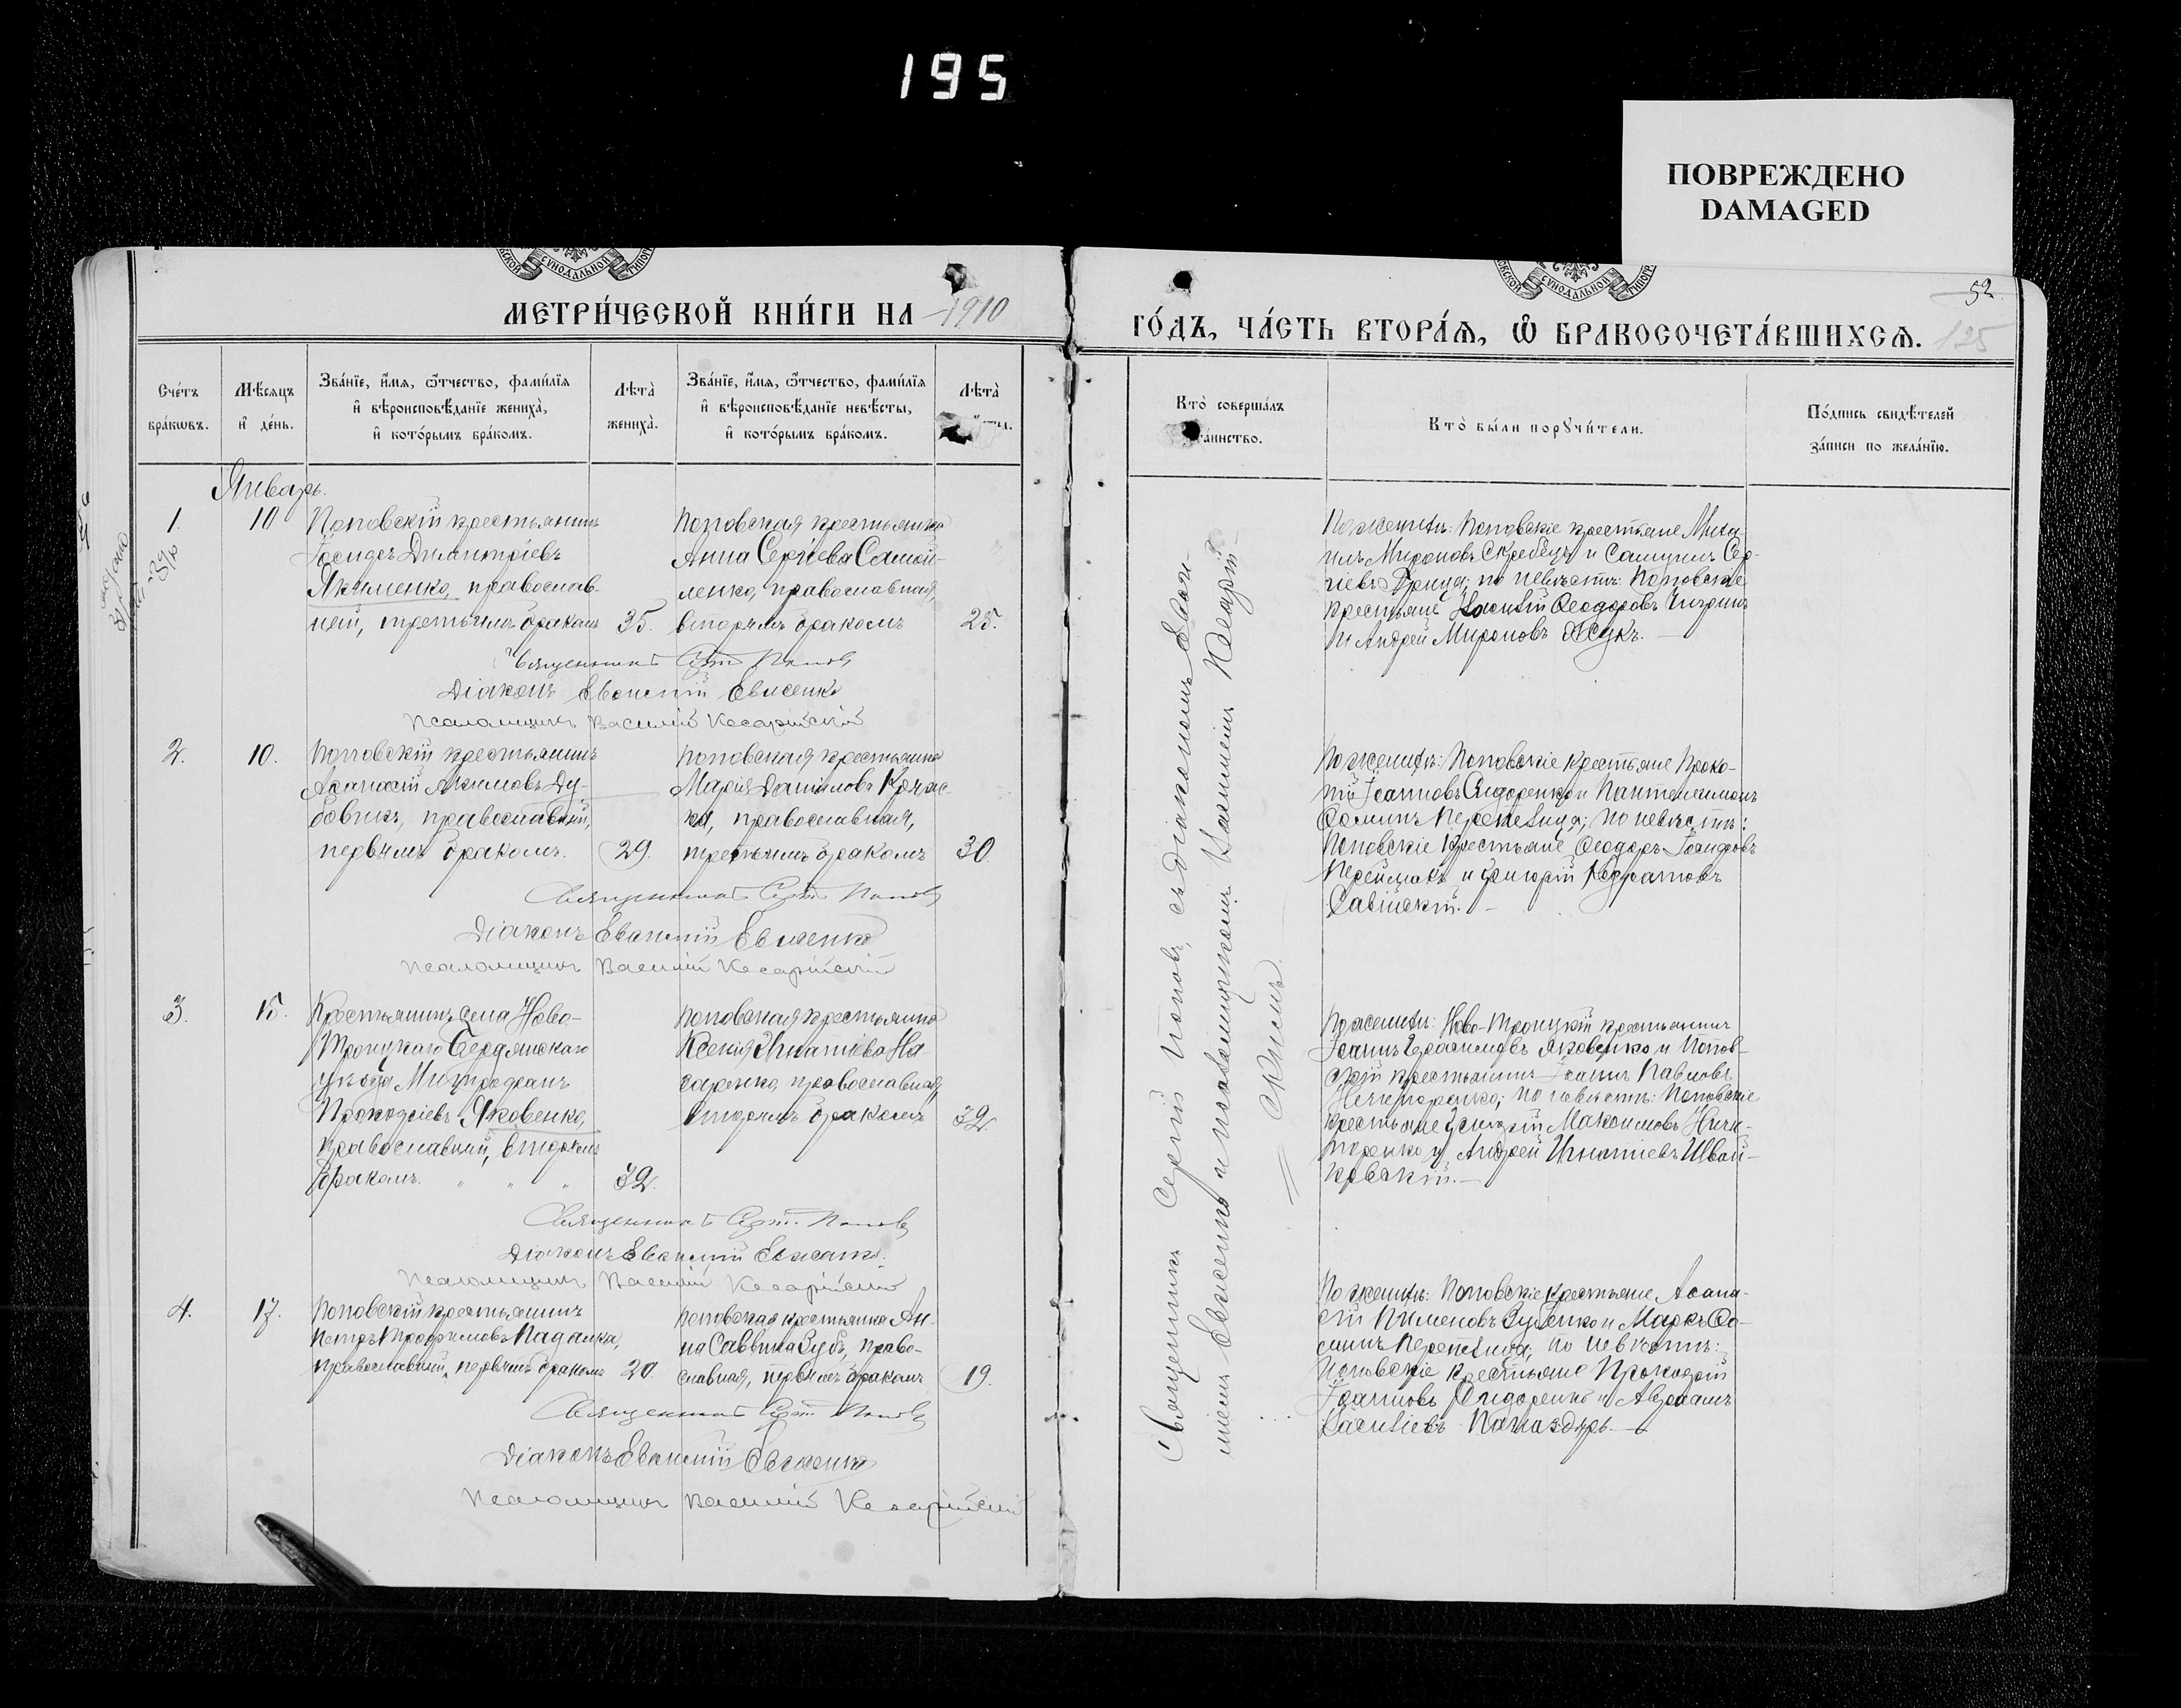 195
ПОВРЕЖДЕНО
DAMAGED
МЕТРИ́ЧЕСКОЙ КНИ́ГИ НА 1910
Сче́тъ бра́кωвъ.
Мѣ́сяцъ и҆ де́нь.
Зва́нїе, и҆́мя, ѻ҆́тчество, фами́лїя
и҆ вѣроисповѣ́данїе жениха̀,
и҆ кото́рымъ бра́комъ.
Лѣта̀ жениха̀.
Зва́нїе, и҆́мя, ѻ҆́тчество, фами́лїя
и҆ вѣроисповѣ́данїе невѣ́сты,
и҆ кото́рымъ бра́комъ.
Лѣта̀
Январь.
1. 10
Поповскій крестьянинъ
Іосифъ Димитріевъ
Якименко, православ-
ный, третьимъ бракомъ 35.
Поповская крестьянка
Анна Сергіева Самой-
ленко, православная,
вторымъ бракомъ 25.
Священникъ Сергій Поповъ
Діаконъ Евѳимій Евсенко
Псаломщикъ Василій Кесарійскій
2. 10.
Поповскій крестьянинъ
Аѳанасій Акимовъ Ду-
бовикъ, православный,
первымъ бракомъ. 29.
Поповская крестьянка
Марія Данилова
православная,
третьимъ бракомъ 30.
Священникъ Сергій Поповъ
Діаконъ Евѳимій Евсенко
Псаломщикъ Василій Кесарійскій
3. 15.
Крестьянинъ села Ново-
Троицкаго Бердянскаго
уѣзда Митрофанъ
Прокофіевъ Яковенко,
православный, вторымъ
бракомъ. " " " 32.
Поповская крестьянка
Ксенія Игнатіева На-
гаренко, православная,
вторымъ бракомъ 32.
Священникъ Сергій Поповъ
Діаконъ Евѳимій Евсенко
Псаломщикъ Василій Кесарійскій
4. 17.
Поповскій крестьянинъ
Петръ Трофимовъ Падалка,
православный, первымъ бракомъ 20.
Поповская крестьянка Ан-
на Саввина Зубъ, право-
славная, первымъ бракомъ 19.
Священникъ Сергій Поповъ
Діаконъ Евѳимій Евсенко
Псаломщикъ Василій Кесарійскій
52.
ГО́ДЪ, ЧА́СТЬ ВТОРА́Я, Ѽ БРАКОСОЧЕТА́ВШИХСЯ. 125
Кто̀ соверша́лъ
таинство.
Кто̀ бы́ли порꙋчи́тели.
По́дпись свидѣ́телей
за́писи по жела́нїю.
Священникъ Сергій Поповъ, съ діакономъ Евѳи-
міемъ Евсенко и псаломщикомъ Василіемъ Кесарій-
скимъ
По женихѣ: Поповскіе крестьяне Миха-
илъ Мироновъ Скребецъ и Самуилъ Сер-
гіевъ Грица; по невѣстѣ: Поповскіе
крестьяне Василій Ѳеодоровъ Чигринъ
и Андрей Мироновъ Жукъ.
По женихѣ: Поповскіе крестьяне Проко-
пій Іоанновъ Сидоренко и Пантелеимонъ
Ѳоминъ Перепелица; по невѣстѣ:
Поповскіе крестьяне Ѳеодоръ Іосифовъ
и Григорій Кодратовъ
Савицкій.
По женихѣ: Ново-Троицкій крестьянинъ
Іоаннъ Герасимовъ Яковенко и Попов-
скій крестьянинъ Іоаннъ Павловъ
Нечипоренко; по невѣстѣ: Поповскіе
крестьяне Максимовъ Ничи-
поренко и Андрей Игнатіевъ Швай-
ковскій.
По женихѣ: Поповскіе крестьяне Аѳана-
сій Пименовъ Зубенко и Маркъ Ѳо-
минъ Перепелица; по невѣстѣ:
Поповскіе крестьяне Прокопій
Іоанновъ Сидоренко и Авраамъ
Василіевъ